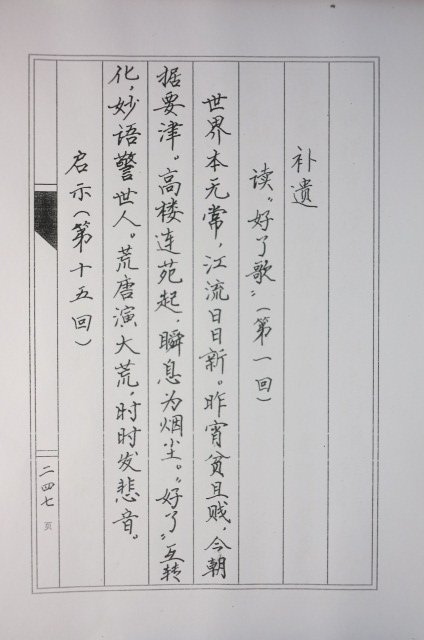 补遗
读“好了歌”(第一回)
世界本无常，江流日日新。昨宵贫且贱，今朝
据要津。高楼连苑起，瞬息为烟尘。“好了”互转
化，妙语警世人。荒唐演大荒，时时发悲音。
启示(第十五回)
二四七页